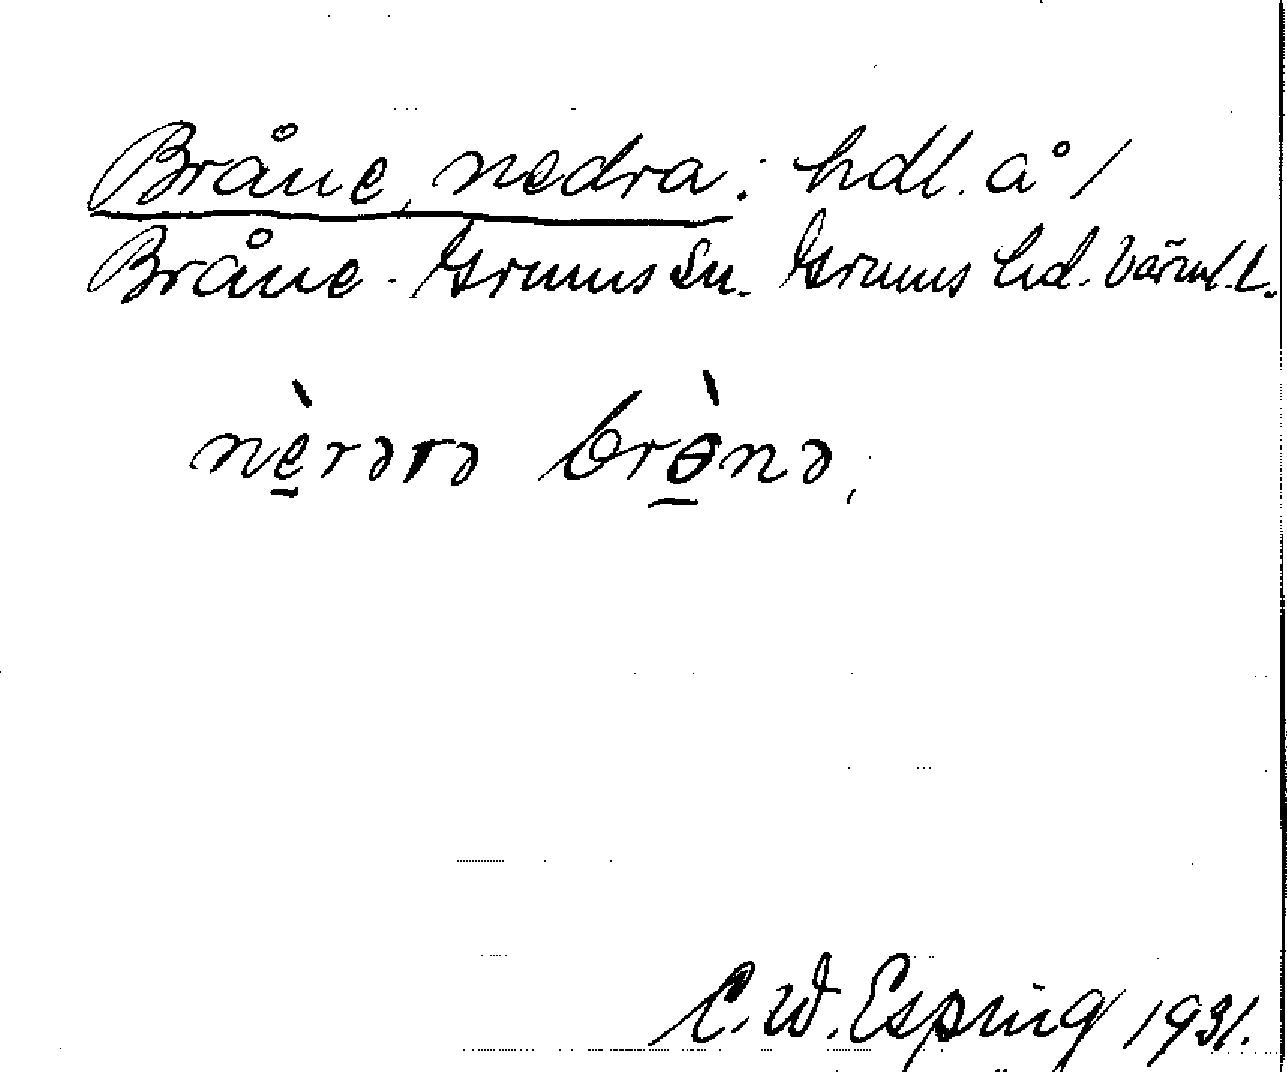 Bråne, nedra: hdl. å 1/
Bråne. Grums sn. Grums hd. Värml. L.
nè̱rərə brò̱nə,
C. W. Esping 1931.